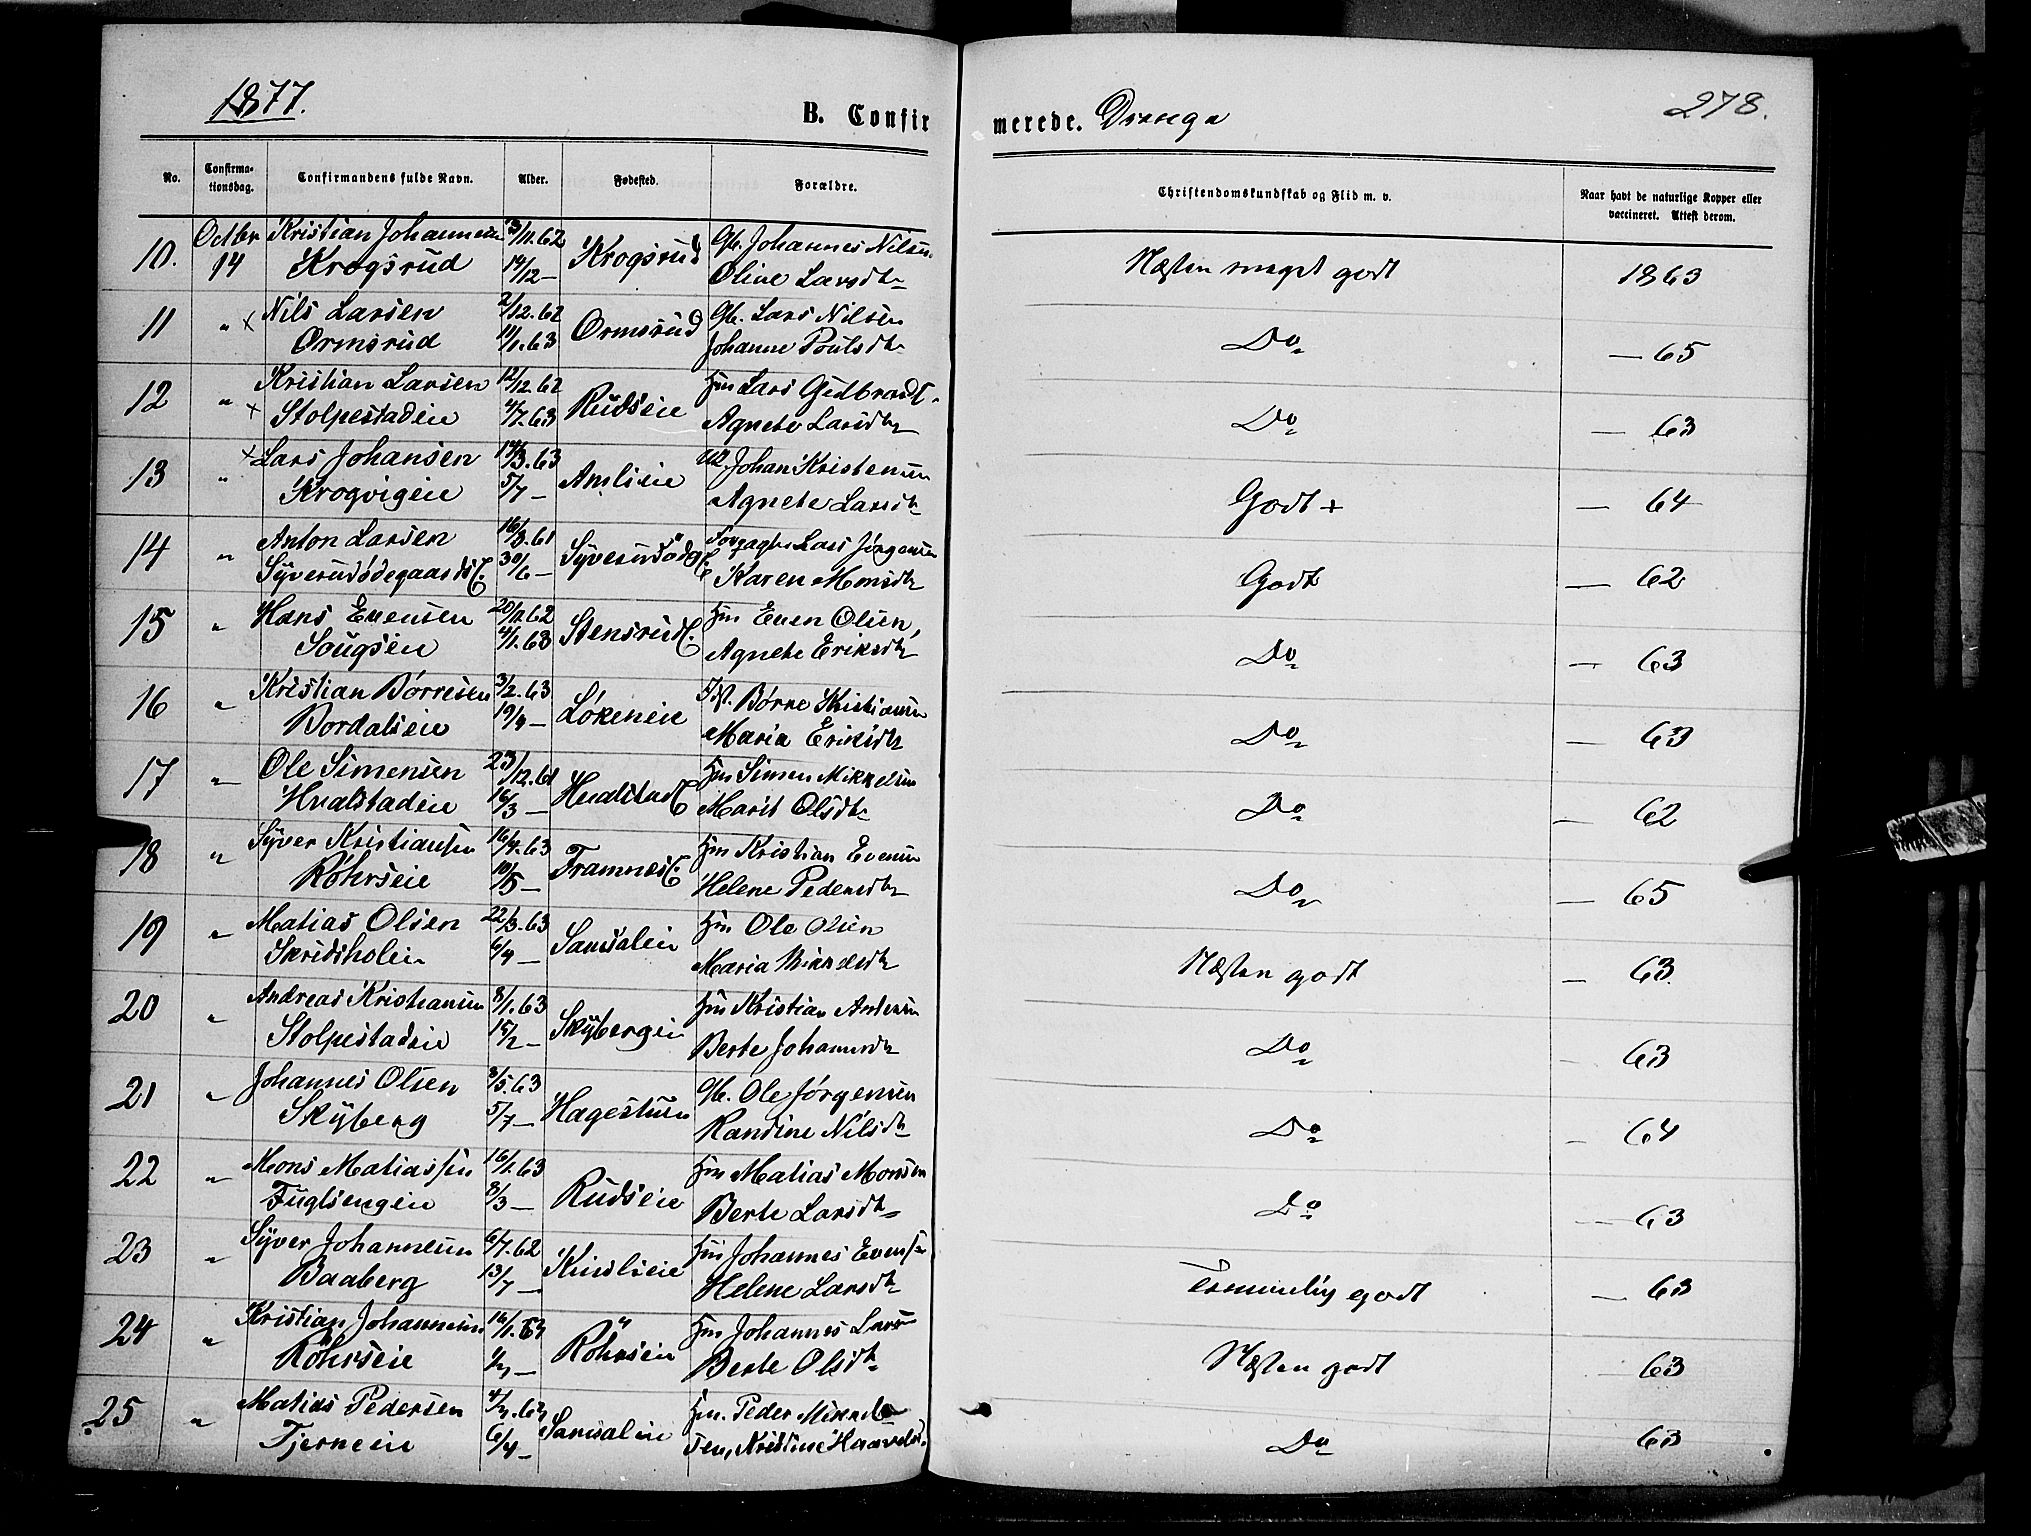 1877.
B. Confirmerede. Drenge
278.
No. Confirmationsdag. Confirmandens fulde Navn. Alder. Fødested. Forældre. Christendomskundskab og Flid m. v. Naar havt de naturlige Kopper eller vaccineret. Attest derom.
Octbr Kristian Johannesen 3/11.62 Krogsrud Gb. Johannes Nilsen
10. 14 Krogsrud 14/12 — Oline Larsdtr Næsten meget godt 1863
Nils Larsen 2/12.62 Ormsrud Gb. Lars Nilsen
11 " × Ormsrud 11/1.63 Johanne Poulsdtr Do — 65
Kristian Larsen 12/12.62 Rudseie Hm Lars Gudbrands.
12 " × Stolpestadeie 4/7.63 Agnete Larsdtr Do — 63
× Lars Johansen 14/3.63 Amlieie Johan Kristensen
13 " Krogvigeie 5/7 — Agnete Larsdtr Godt + — 64
Anton Larsen 16/3.61 Syverudødg. Forpagter Lars Jørgensen
14 " Syverudødegaards 30/6 — Karen Monsdtr Godt — 62
Hans Evensen 20/11.62 Stensrud Hm Even Olsen,
15 " 4/1.63 Agnete Eriksdtr Do — 63
Kristian Børresen 3/2.63 Løkeneie Børre Kristiansen
16 " Bordalseie 19/4 — Maria Eriksdtr Do — 63
Ole Simensen 23/12.61 Hvalstad Hm Simen Mikkelsen
17 " Hvalstadeie 16/3 — Marit Olsdtr Do — 62
Syver Kristiansen 16/4.63 Framnes Hm Kristian Evensen
18 " Røhrseie 10/5 — Helene Pedersdtr Do — 65
Matias Olsen 22/3.63 Sandaleie Hm Ole Olsen
19 " Skridsholen 6/4 — Maria Mikkelsdtr Næsten godt — 63
Andreas Kristiansen 8/1.63 Skybergeie Hm Kristian Andersen
20 " Stolpestadeie 15/2 — Berte Johannesdtr Do — 63
Johannes Olsen 3/5.63 Hagestuen Gb. Ole Jørgensen
21 " Skyberg 5/7 — Randine Nilsdtr Do — 64
Mons Matiassen 16/1.63 Rudseie Hm Matias Monsen
22 " Fuglsengen 8/3 — Berte Larsdtr Do — 63
Syver Johannesen 6/7.62 Kinslieie Hm Johannes Evensen
23 " Baaberg 13/7 — Helene Larsdtr Temmelig godt — 63
Kristian Johannesen 16/1.63 Röhrseie Hm Johannes Lars
24 " Røhrseie Berte Olsdtr Næsten godt — 63
Matias Pedersen Sandaleie Hm. Peder Mikkel-
25 " Tjerneie 6/4 — sen, Kristine Haavelsd. Do 63